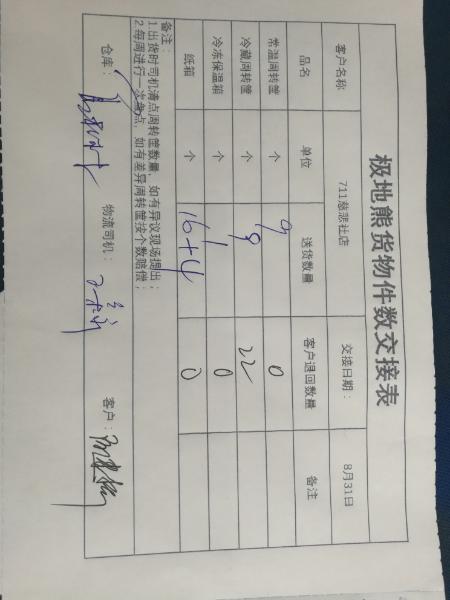 极地熊货物件数交接表
客户名称 711慈悲社店 交接日期: 8月31日
品名 单位 送货数量 客户退回数量 备注
常温周转筐 个 9 0
冷藏周转筐 个 9 22
冷冻保温箱 个 1 0
纸箱 个 16+4 0
备注:
1.出货时司机清点周转筐数量,如有异议现场提出;
2.每周进行一次盘点,如有差异周转筐按个数赔偿;
仓库: 物流司机: 客户: